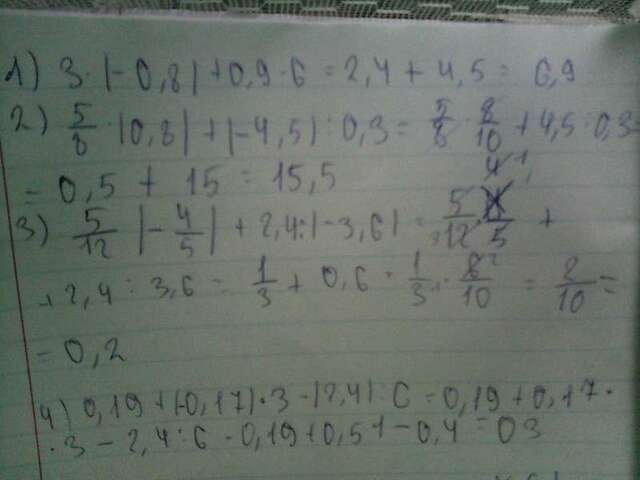 1) 3 · |-0,8| + 0,9 · 6 = 2,4 + 4,5 = 6,9
2) 5/8 · |0,8| + |-4,5| : 0,3 = 5/8 · 8/10 + 4,5 : 0,3=
= 0,5 + 15 = 15,5
3) 5/12 |-4/5| + 2,4 : |-3,6| = 5/12 · 4/5 +
+ 2,4 : 3,6 = 1/3 + 0,6 = 1/3 · 8/10 = 2/10 =
= 0,2
4) 0,19 + |-0,17| · 3 - |2,4| : 6 = 0,19 + 0,17 ·
· 3 - 2,4 : 6 = 0,19 + 0,51 - 0,4 = 03